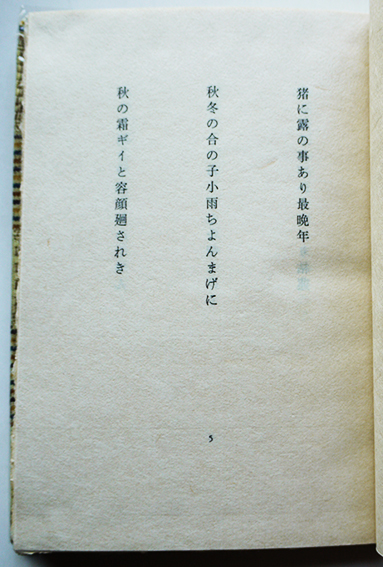 猪に露の事あり最晩年
秋冬の合の子小雨ちよんまげに
秋の霜ギイと容顔廻されき
5